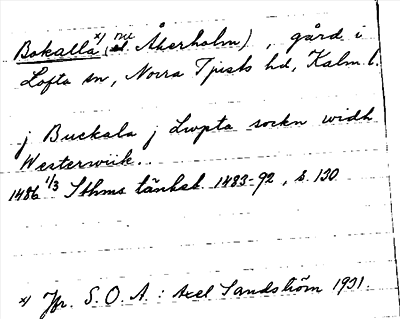 Bokalla x) (nu Åkerholm), gård i
Lofta sn, Norra Tjusts hd, Kalm. l.
j Buckala j Lwpta sockn widh
Westerwiik.
1486 1/3 Sthms tänkeb. 1483-92, s. 130
x) Jfr. S.O.A.: Axel Sandström 1931.